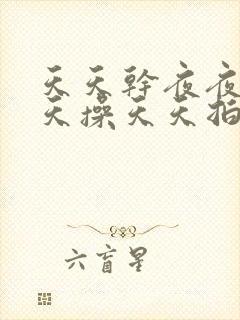 天天幹夜夜
天操天天拍
六盲星